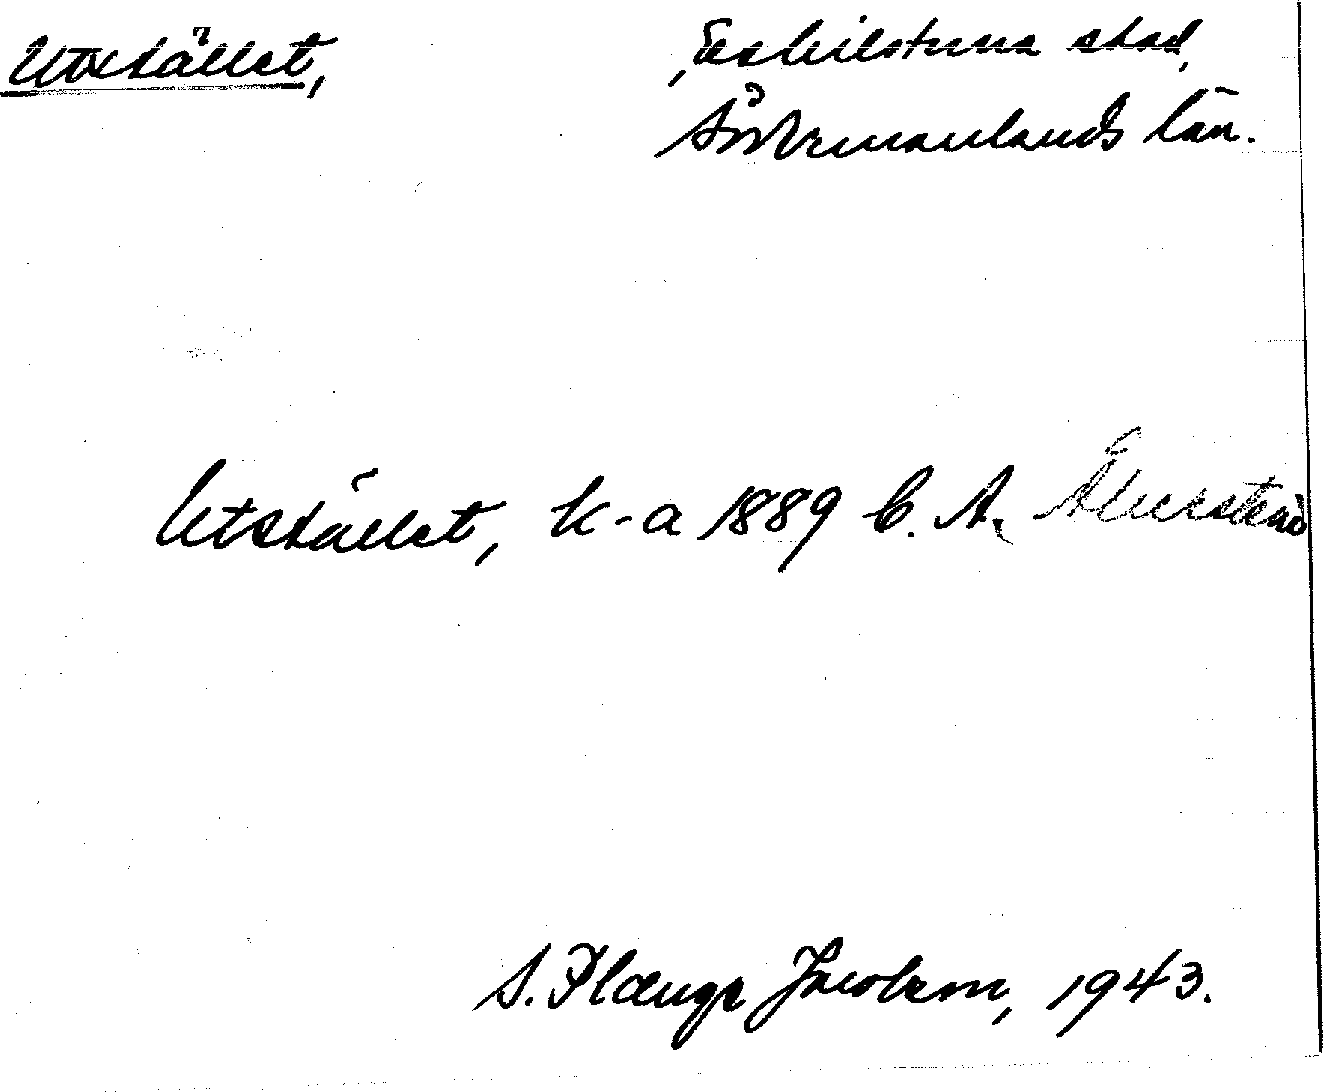 Utstället, Eskilstuna stad,
Södermanlands län.
Utstället, k-a 1889 C. A.
S. Plænge Jacobson, 1943.